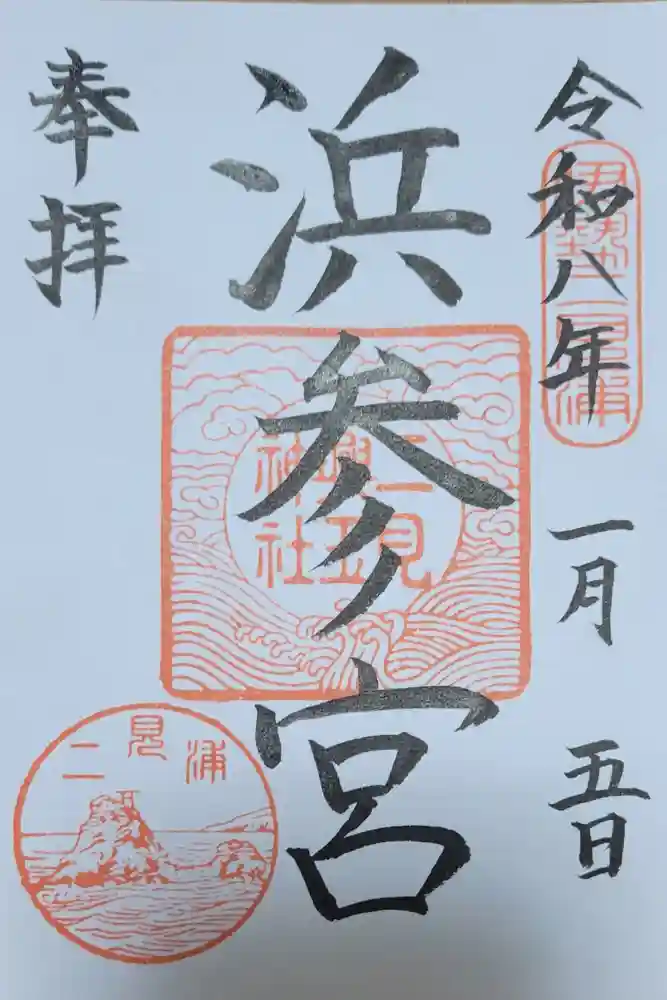 令和八年 一月 五日
伊勢二見浦
浜参宮
二見
興玉
神社
奉拝
二見浦